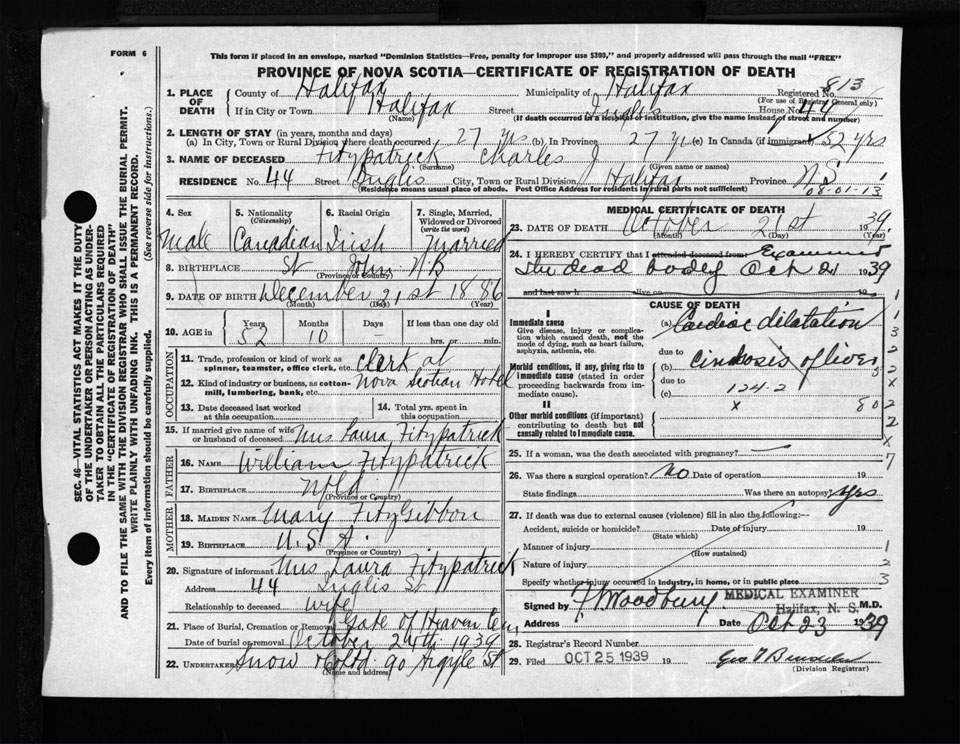 FORM 6
This form if placed in an envelope, marked "Dominion Statistics—Free, penalty for improper use $300," and properly addressed will pass through the mail "FREE"
PROVINCE OF NOVA SCOTIA—CERTIFICATE OF REGISTRATION OF DEATH
SEC. 46—VITAL STATISTICS ACT MAKES IT THE DUTY
OF THE UNDERTAKER OR PERSON ACTING AS UNDER-
TAKER TO OBTAIN ALL THE PARTICULARS REQUIRED
IN THE "CERTIFICATE OF REGISTRATION OF DEATH"
AND TO FILE THE SAME WITH THE DIVISION REGISTRAR WHO SHALL ISSUE THE BURIAL PERMIT.
WRITE PLAINLY WITH UNFADING INK. THIS IS A PERMANENT RECORD.
Every item of information should be carefully supplied. (See reverse side for instructions.)
1. PLACE OF DEATH County of Halifax Municipality of Halifax Registered No. 813
(For use of Registrar General only)
If in City or Town Halifax Street Inglis House No. 44
(Name) (If death occurred in a hospital or institution, give the name instead of street and number)
2. LENGTH OF STAY (in years, months and days)
(a) In City, Town or Rural Division where death occurred 27 yrs (b) In Province 27 yrs (c) In Canada (if immigrant) 52 yrs
3. NAME OF DECEASED Fitzpatrick Charles J
(Surname) (Given name or names)
RESIDENCE No. 44 Street Inglis City, Town or Rural Division Halifax Province N.S.
(Residence means usual place of abode. Post Office Address for residents in rural parts not sufficient) 08-01-13
4. Sex Male
5. Nationality (Citizenship) Canadian
6. Racial Origin Irish
7. Single, Married, Widowed or Divorced (write the word) Married
8. BIRTHPLACE St John N B
(Province or Country)
9. DATE OF BIRTH December 21st 1886
(Month) (Day) (Year)
10. AGE in Years 52 Months 10 Days If less than one day old hrs. or min.
OCCUPATION
11. Trade, profession or kind of work as spinner, teamster, office clerk, etc. clerk at
12. Kind of industry or business, as cotton-mill, lumbering, bank, etc. Nova Scotian Hotel
13. Date deceased last worked at this occupation
14. Total yrs. spent in this occupation
15. If married give name of wife or husband of deceased Mrs Laura Fitzpatrick
FATHER
16. NAME William Fitzpatrick
17. BIRTHPLACE Nfld
(Province or Country)
MOTHER
18. MAIDEN NAME Mary FitzGibbon
19. BIRTHPLACE U.S.A.
(Province or Country)
20. Signature of informant Mrs Laura Fitzpatrick
Address 44 Inglis St
Relationship to deceased wife
21. Place of Burial, Cremation or Removal Gate of Heaven Cem
Date of burial or removal October 24th 1939
22. UNDERTAKER Snow 90 Argyle St
(Name and address)
MEDICAL CERTIFICATE OF DEATH
23. DATE OF DEATH October 21st 1939
(Month) (Day) (Year)
24. I HEREBY CERTIFY that I attended deceased from: Examined
the dead body Oct 21 1939
and last saw h alive on 19
CAUSE OF DEATH
I
Immediate cause
Give disease, injury or complication which caused death, not the mode of dying, such as heart failure, asphyxia, asthenia, etc.
(a) Cardiac dilatation
due to
Morbid conditions, if any, giving rise to immediate cause (stated in order proceeding backwards from immediate cause).
(b) cirrhosis of liver
due to 124.2
(c)
x 80
II
Other morbid conditions (if important) contributing to death but not causally related to immediate cause.
1
1
3
2
x
2
2
x
7
25. If a woman, was the death associated with pregnancy?
26. Was there a surgical operation? No Date of operation 19
State findings Was there an autopsy? Yes
27. If death was due to external causes (violence) fill in also the following:—
Accident, suicide or homicide? Date of injury 19
(State which)
Manner of injury 1
(How sustained)
Nature of injury 2
Specify whether injury occurred in industry, in home, or in public place 3
Signed by F Woodbury M.D.
MEDICAL EXAMINER
Halifax, N. S.
Address Date Oct 23 1939
28. Registrar's Record Number
29. Filed OCT 25 1939 19
(Division Registrar)